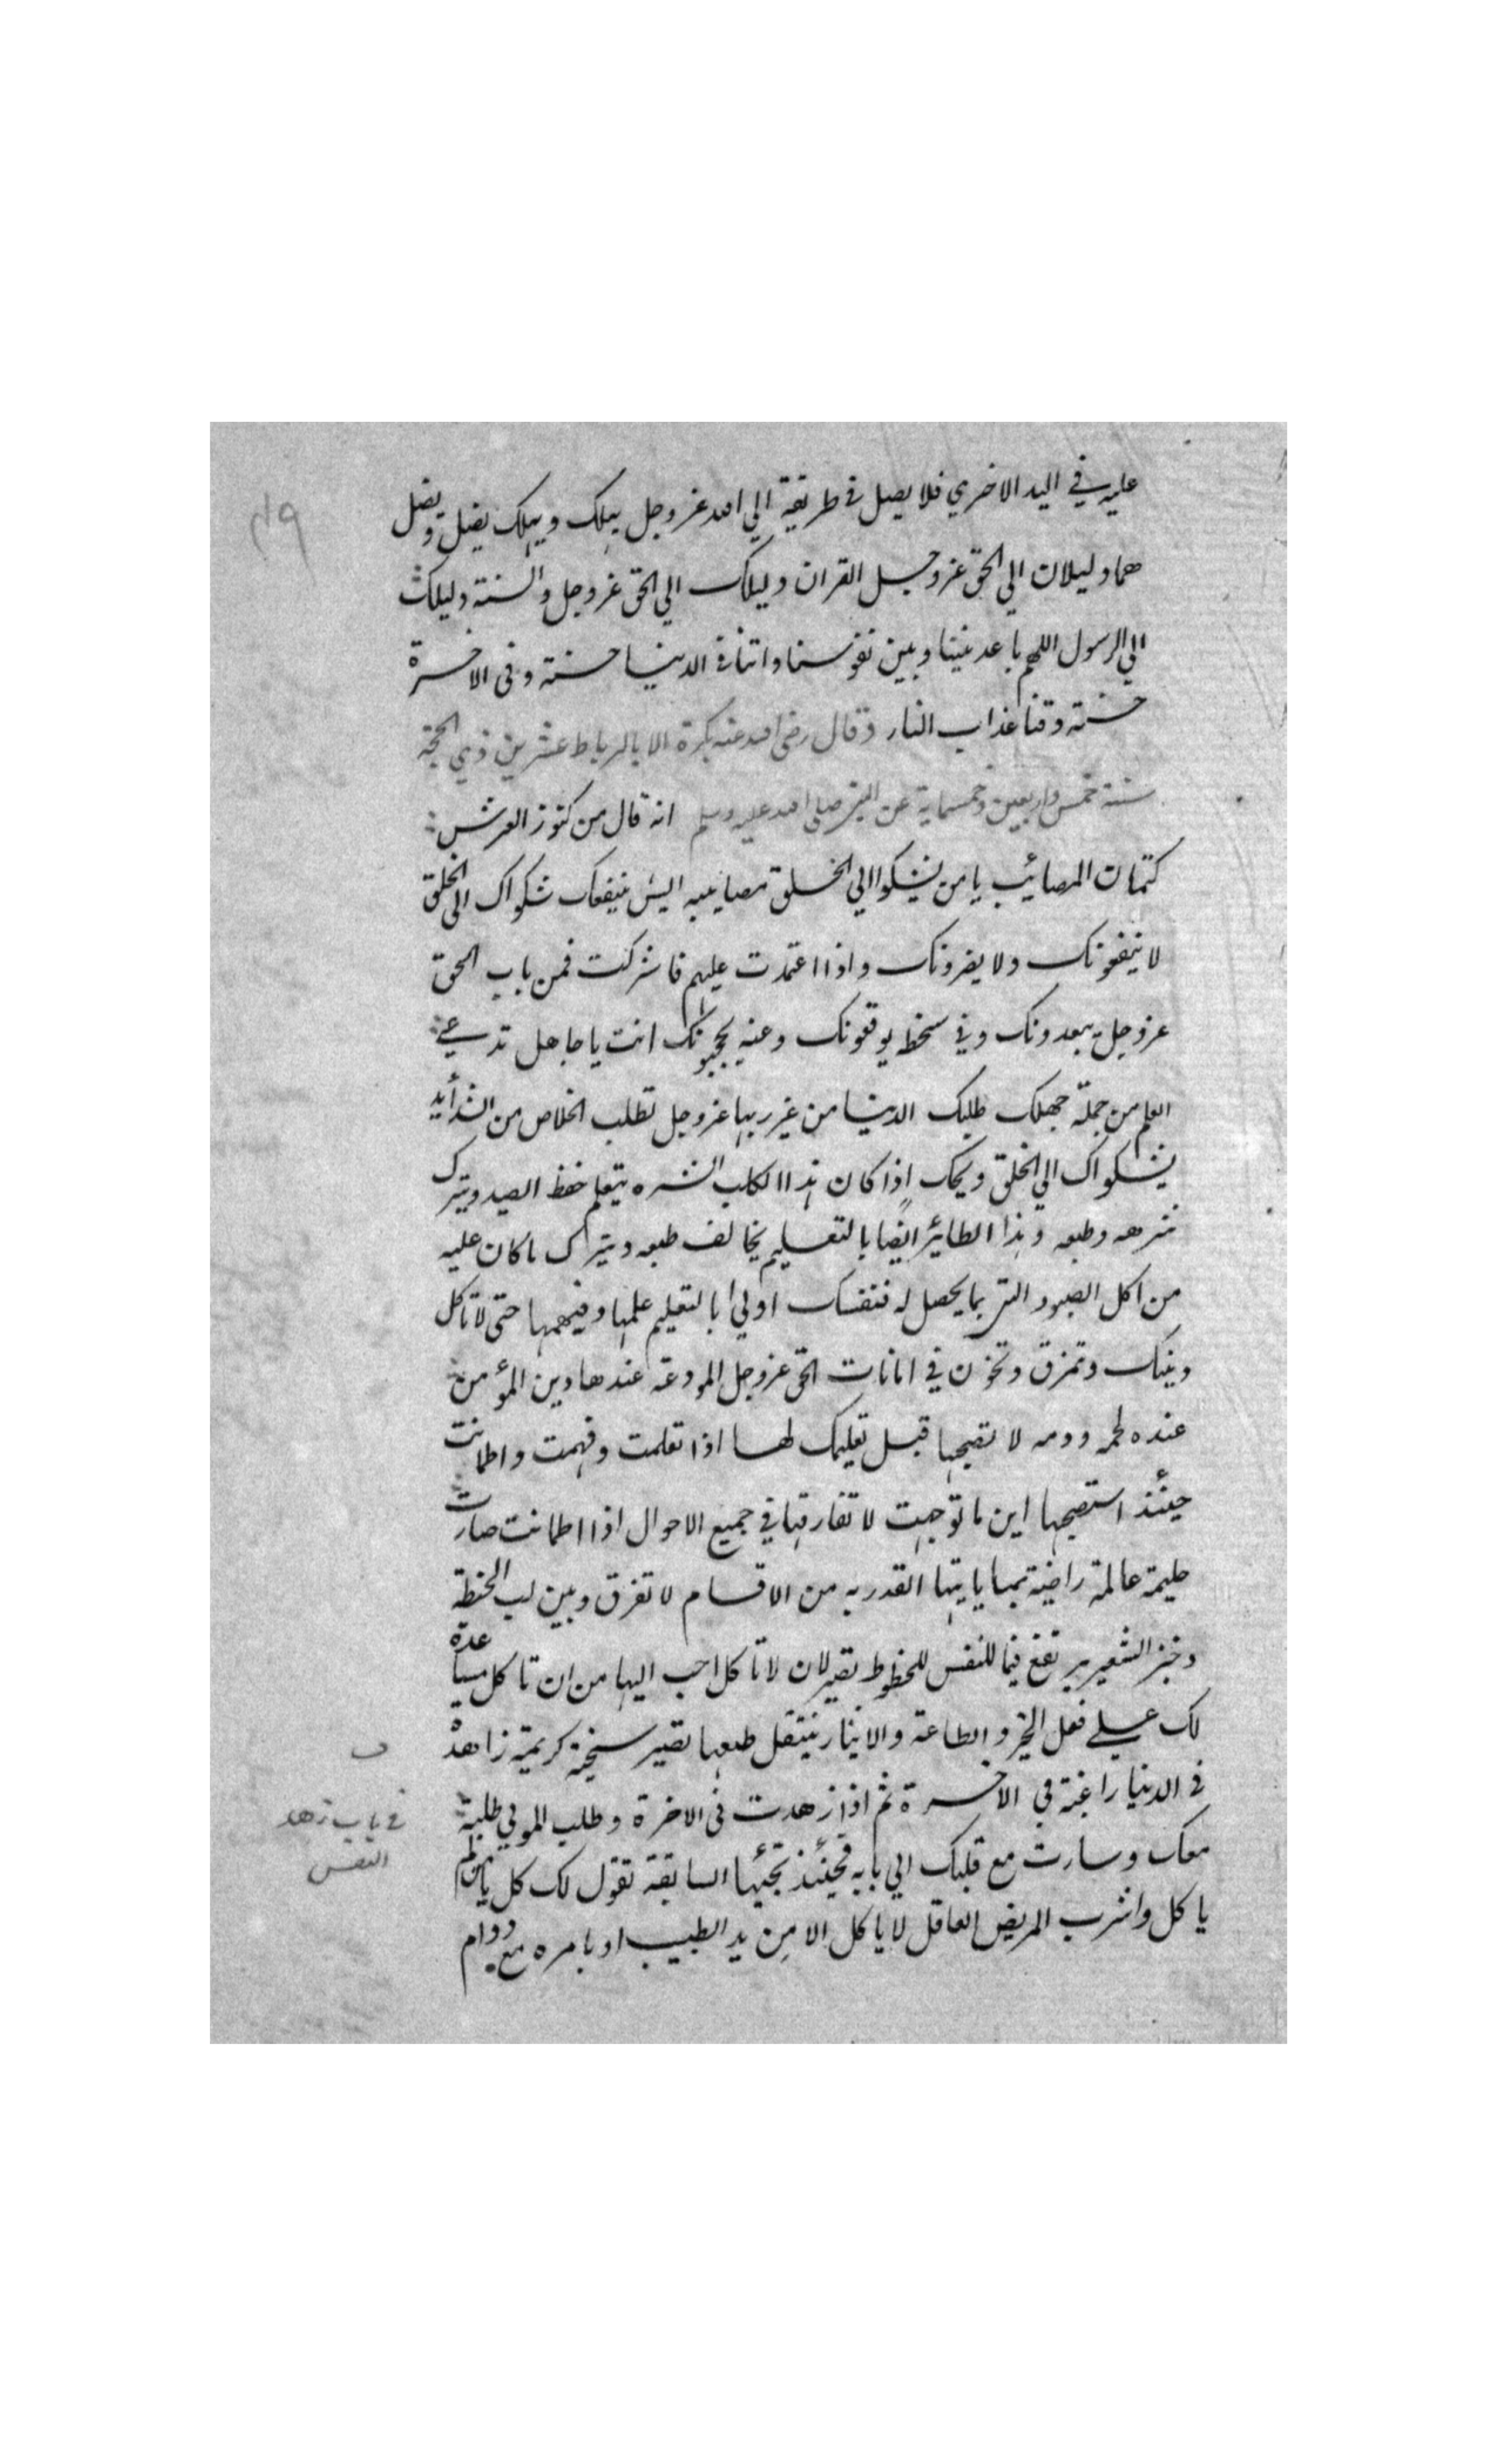 عليه في اليد الاخري فلا يصل في طريقه الي الله عز وجل يهلك ويهلك يضل ويضل
هما دليلان الي الحق عز وجل القران دليلك الي الحق عز وجل والسنة دليلك
الي الرسول اللهم باعد بيننا وبين نفوسنا واتنا في الدنيا حسنة وفي الاخرة
حسنة وقنا عذاب النار وقال رضي الله عنه بكرة الا بالرباط عشرين ذي الحجة
سنة خمس واربعين وخمسماية عن النبي صلي الله عليه وسلم انه قال من كنوز العرش
كتمان المصائب يا من يشكوا الي الخلق مصايبه اليش ينفعك شكواك الي الخلق
لا ينفعونك ولا يضرونك واذا اعتمدت عليهم فاشركت فمن باب الحق
عز وجل يبعدونك وفي سخطه يوقعونك وعنه يحجبونك انت يا جاهل تدعي
العلم من جملة جهلك طلبك الدنيا من غير ربها عز وجل تطلب الخلاص من الشدأيد
بشكواك الي الخلق ويحك اذا كان هذا الكلب الشره يتعلم حفظ الصيد ويترك
شرهه وطبعه وهذا الطائر ايضا بالتعليم يخالف طبعه ويترك ما كان عليه
من اكل الصيود التي بما يحصل له فنفسك اولي بالتعليم علمها وفهمها حتى لا تاكل
دينك وتمزق وتخون في امانات الحق عز وجل المودعة عندها دين المؤمن
عنده لحمه ودمه لا تصحبها قبل تعليمك لها اذا تعلمت وفهمت واطمانت
حينئذ استصحبها اين ما توجهت لا تفارقها في جميع الاحوال اذا اطمانت صارت
حليمة عالمة راضية بما ياتيها القدر به من الاقسام لا تفرق وبين لب الحنطة
وخبز الشعير يرتفع فيما للنفس للحظوظ تصير لان لا تاكل احب اليها من ان تاكل مساعدة
لك علي فعل الخير والطاعة والايثار ينتقل طبعها تصير سخية كريمة زاهدة
في الدنيا راغبة في الاخرة ثم اذا زهدت في الاخرة وطلب المولي طلبة
معك وسارت مع قلبك الي بابه فحينئذ تجيئها السابقة تقول لك كل يا من لم
ياكل واشرب المريض العاقل لا ياكل الا من يد الطبيب او بامره مع دوام
في باب زهد
النفس